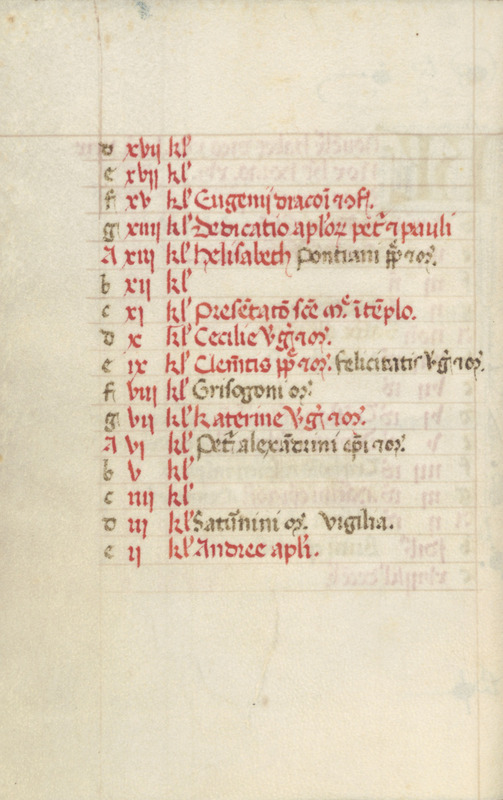 d xvii kl'
e xvii kl'
f xv kl' Eugenij diaconi ⁊ ɔf.
g xiiii kl' Dedicatio aplor̄ petri ⁊ pauli
A xiii kl' helisabeth Pontiani pp̄ ⁊ m̄r.
b xii kl'
c xi kl' Presētatō scē mr̄e ī tēplo.
d x kl' Cecilie v̄gīs ⁊ m̄r.
e ix kl' Clemētis pp̄ ⁊ m̄r. felicitatis v̄gīs ⁊ m̄r.
f viii kl' Grisogoni m̄r.
g vii kl' Katerine v̄gīs ⁊ m̄r.
A vi kl' Petri alexādrini ep̄i ⁊ m̄r.
b v kl'
c iiii kl'
d iii kl' Saturnini m̄r. vigilia.
e ii kl' Andree apl'i.